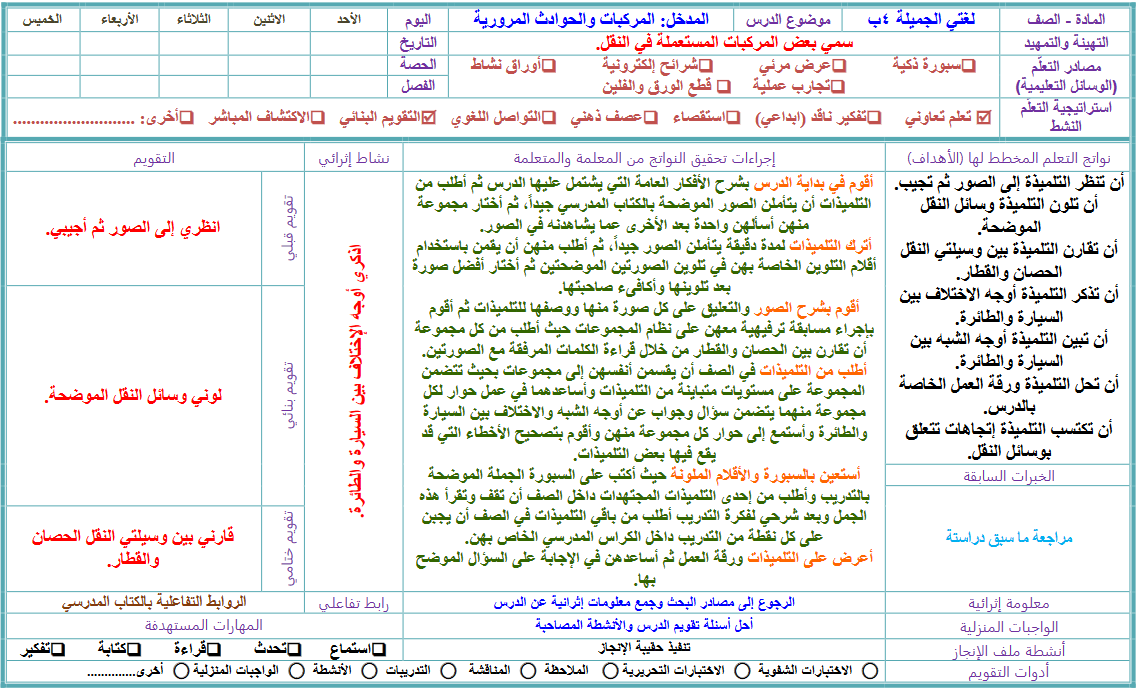 المادة - الصف
لغتي الجميلة ٤ب
موضوع الدرس
المدخل: المركبات والحوادث المرورية
اليوم
الأحد
الاثنين
الثلاثاء
الأربعاء
الخميس
التهيئة والتمهيد
سمي بعض المركبات المستعملة في النقل.
التاريخ
مصادر التعلّم
(الوسائل التعليمية)
❑سبورة ذكية
❑عرض مرئي
❑شرائح إلكترونية
❑أوراق نشاط
❑تجارب عملية
❑ قطع الورق والفلين
الحصة
الفصل
استراتيجية التعلّم
النشط
☑ تعلم تعاوني
❑تفكير ناقد (ابداعي)
❑استقصاء
❑عصف ذهني
❑التواصل اللغوي
☑التقويم البنائي
❑الاكتشاف المباشر
❑أخرى: ...........................
نواتج التعلم المخطط لها (الأهداف)
إجراءات تحقيق النواتج من المعلمة والمتعلمة
نشاط إثرائي
التقويم
أن تنظر التلميذة إلى الصور ثم تجيب.
أن تلون التلميذة وسائل النقل
الموضحة.
أن تقارن التلميذة بين وسيلتي النقل
الحصان والقطار.
أن تذكر التلميذة أوجه الاختلاف بين
السيارة والطائرة.
أن تبين التلميذة أوجه الشبه بين
السيارة والطائرة.
أن تحل التلميذة ورقة العمل الخاصة
بالدرس.
أن تكتسب التلميذة إتجاهات تتعلق
بوسائل النقل.
الخبرات السابقة
مراجعة ما سبق دراستة
أقوم في بداية الدرس بشرح الأفكار العامة التي يشتمل عليها الدرس ثم أطلب من
التلميذات أن يتأملن الصور الموضحة بالكتاب المدرسي جيداً، ثم أختار مجموعة
منهن أسألهن واحدة بعد الأخرى عما يشاهدنه في الصور.
أترك التلميذات لمدة دقيقة يتأملن الصور جيداً، ثم أطلب منهن أن يقمن باستخدام
أقلام التلوين الخاصة بهن في تلوين الصورتين الموضحتين ثم أختار أفضل صورة
بعد تلوينها وأكافىء صاحبتها.
أقوم بشرح الصور والتعليق على كل صورة منها ووصفها للتلميذات ثم أقوم
بإجراء مسابقة ترفيهية معهن على نظام المجموعات حيث أطلب من كل مجموعة
أن تقارن بين الحصان والقطار من خلال قراءة الكلمات المرفقة مع الصورتين.
أطلب من التلميذات في الصف أن يقسمن أنفسهن إلى مجموعات بحيث تتضمن
المجموعة على مستويات متباينة من التلميذات وأساعدهما في عمل حوار لكل
مجموعة منهما يتضمن سؤال وجواب عن أوجه الشبه والاختلاف بين السيارة
والطائرة وأستمع إلى حوار كل مجموعة منهن وأقوم بتصحيح الأخطاء التي قد
يقع فيها بعض التلميذات.
أستعين بالسبورة والأقلام الملونة حيث أكتب على السبورة الجملة الموضحة
بالتدريب وأطلب من إحدى التلميذات المجتهدات داخل الصف أن تقف وتقرأ هذه
الجمل وبعد شرحي لفكرة التدريب أطلب من باقي التلميذات في الصف أن يجبن
على كل نقطة من التدريب داخل الكراس المدرسي الخاص بهن.
أعرض على التلميذات ورقة العمل ثم أساعدهن في الإجابة على السؤال الموضح
بها.
اذكري أوجه الإختلاف بين السيارة والطائرة.
تقويم قبلي
انظري إلى الصور ثم أجيبي.
تقويم بنائي
لوني وسائل النقل الموضحة.
تقويم ختامي
قارني بين وسيلتي النقل الحصان
والقطار.
معلومة إثرائية
الرجوع إلى مصادر البحث وجمع معلومات إثرائية عن الدرس
رابط تفاعلي
الروابط التفاعلية بالكتاب المدرسي
الواجبات المنزلية
أحل أسئلة تقويم الدرس والأنشطة المصاحبة
المهارات المستهدفة
أنشطة ملف الإنجاز
تنفيذ حقيبة الإنجاز
❑استماع
❑تحدث
❑قراءة
❑كتابة
❑تفكير
أدوات التقويم
◯ الاختبارات الشفوية ◯ الاختبارات التحريرية ◯ الملاحظة ◯ المناقشة ◯ التدريبات ◯ الأنشطة ◯ الواجبات المنزلية ◯ أخرى..............